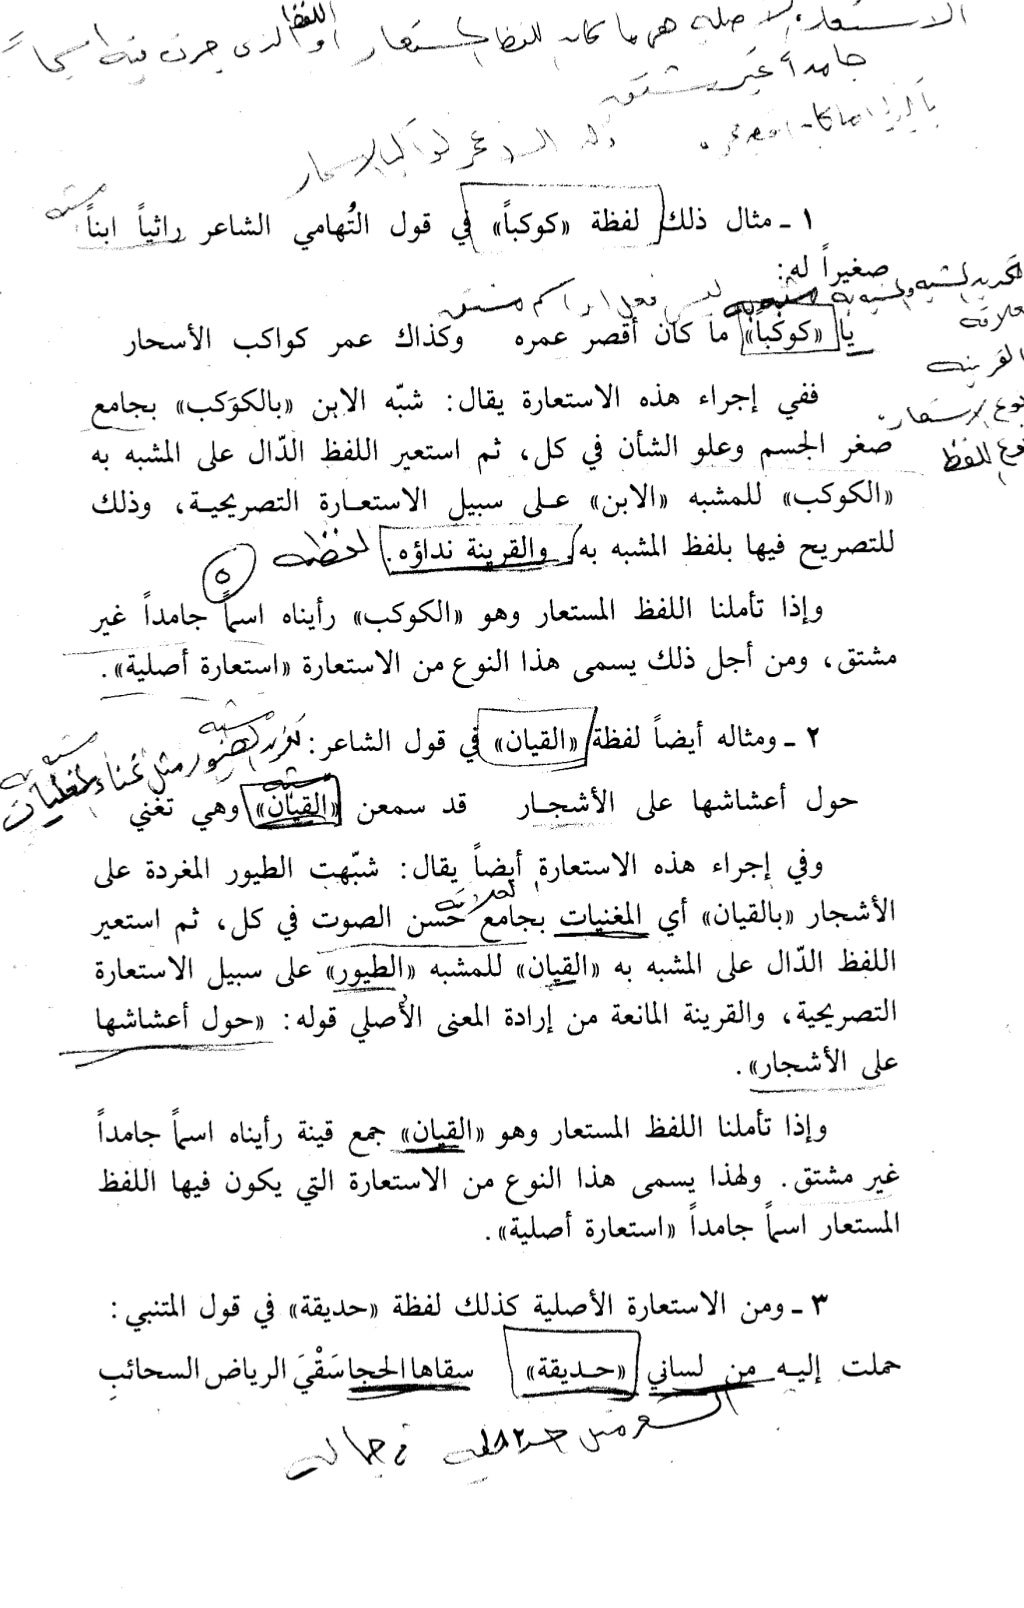 الاستعارة الاصلية هي ما كان اللفظ المستعار أو اللفظ الذي جرت فيه اسماً
جامداً غير مشتق
١ ـ مثال ذلك لفظة «كوكباً» في قول التُهامي الشاعر راثياً ابناً
مشبه
صغيراً له:
ليس فعل او اسم مشتق
يا «كوكباً» ما كان أقصر عمره وكذاك عمر كواكب الأسحار
علاقة
القرينة
نوع الاستعارة
نوع اللفظ
ففي إجراء هذه الاستعارة يقال: شبّه الابن «بالكوَكب» بجامع
صغر الجسم وعلو الشأن في كل، ثم استعير اللفظ الدّال على المشبه به
«الكوكب» للمشبه «الابن» على سبيل الاستعارة التصريحية، وذلك
للتصريح فيها بلفظ المشبه به. والقرينة نداؤه. لفظية
٥
وإذا تأملنا اللفظ المستعار وهو «الكوكب» رأيناه اسماً جامداً غير
مشتق، ومن أجل ذلك يسمى هذا النوع من الاستعارة «استعارة أصلية».
٢ ـ ومثاله أيضاً لفظة «القيان» في قول الشاعر:
مشبه
تغريد الطيور مثل غناء المغنيات
مشبه به
حول أعشاشها على الأشجار قد سمعن «القيان» وهي تغني
وفي إجراء هذه الاستعارة أيضاً يقال: شبّهت الطيور المغردة على
الأشجار «بالقيان» أي المغنيات بجامع حَسن الصوت في كل، ثم استعير
اللفظ الدّال على المشبه به «القيان» للمشبه «الطيور» على سبيل الاستعارة
التصريحية، والقرينة المانعة من إرادة المعنى الأُصلي قوله: «حول أعشاشها
على الأشجار».
وإذا تأملنا اللفظ المستعار وهو «القيان» جمع قينة رأيناه اسماً جامداً
غير مشتق. ولهذا يسمى هذا النوع من الاستعارة التي يكون فيها اللفظ
المستعار اسماً جامداً «استعارة أصلية».
٣ ـ ومن الاستعارة الأصلية كذلك لفظة «حديقة» في قول المتنبي:
حملت إليه من لساني «حديقة» سقاها الحجا سَقْيَ الرياض السحائبِ
الشعر مثل الحديقة في جماله